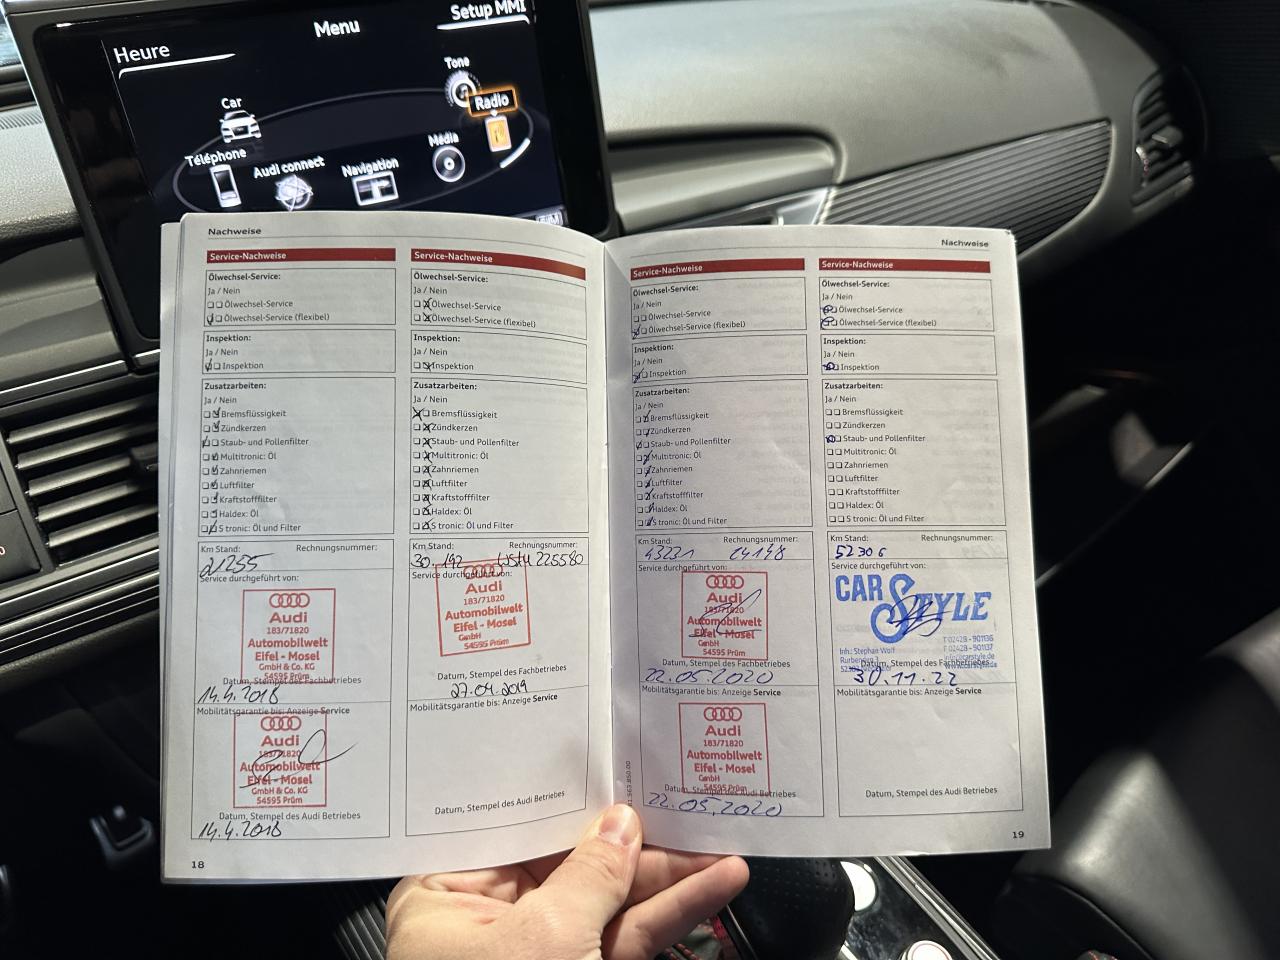 Heure
Menu
Setup MMI
Tone
Radio
Car
Média
Téléphone
Audi connect
Navigation
Nachweise
Service-Nachweise
Ölwechsel-Service:
Ja / Nein
Ölwechsel-Service
Ölwechsel-Service (flexibel)
Inspektion:
Ja / Nein
Inspektion
Zusatzarbeiten:
Ja / Nein
Bremsflüssigkeit
Zündkerzen
Staub- und Pollenfilter
Multitronic: Öl
Zahnriemen
Luftfilter
Kraftstofffilter
Haldex: Öl
S tronic: Öl und Filter
Km Stand: Rechnungsnummer:
21255
Service durchgeführt von:
Audi
183/71820
Automobilwelt
Eifel - Mosel
GmbH & Co. KG
54595 Prüm
Datum, Stempel des Fachbetriebes
14.4.2018
Mobilitätsgarantie bis: Anzeige Service
Audi
183/71820
Automobilwelt
Eifel - Mosel
GmbH & Co. KG
54595 Prüm
Datum, Stempel des Audi Betriebes
14.4.2018
18
Service-Nachweise
Ölwechsel-Service:
Ja / Nein
Ölwechsel-Service
Ölwechsel-Service (flexibel)
Inspektion:
Ja / Nein
Inspektion
Zusatzarbeiten:
Ja / Nein
Bremsflüssigkeit
Zündkerzen
Staub- und Pollenfilter
Multitronic: Öl
Zahnriemen
Luftfilter
Kraftstofffilter
Haldex: Öl
S tronic: Öl und Filter
Km Stand: Rechnungsnummer:
30.192
Service durchgeführt von:
Audi
183/71820
Automobilwelt
Eifel - Mosel
GmbH
54595 Prüm
Datum, Stempel des Fachbetriebes
27.04.2019
Mobilitätsgarantie bis: Anzeige Service
Datum, Stempel des Audi Betriebes
Nachweise
Service-Nachweise
Ölwechsel-Service:
Ja / Nein
Ölwechsel-Service
Ölwechsel-Service (flexibel)
Inspektion:
Ja / Nein
Inspektion
Zusatzarbeiten:
Ja / Nein
Bremsflüssigkeit
Zündkerzen
Staub- und Pollenfilter
Multitronic: Öl
Zahnriemen
Luftfilter
Kraftstofffilter
Haldex: Öl
S tronic: Öl und Filter
Km Stand: Rechnungsnummer:
43231
Service durchgeführt von:
Audi
183/71820
Automobilwelt
Eifel - Mosel
GmbH
54595 Prüm
Datum, Stempel des Fachbetriebes
22.05.2020
Mobilitätsgarantie bis: Anzeige Service
Audi
183/71820
Automobilwelt
Eifel - Mosel
GmbH
54595 Prüm
Datum, Stempel des Audi Betriebes
22.05.2020
Service-Nachweise
Ölwechsel-Service:
Ja / Nein
Ölwechsel-Service
Ölwechsel-Service (flexibel)
Inspektion:
Ja / Nein
Inspektion
Zusatzarbeiten:
Ja / Nein
Bremsflüssigkeit
Zündkerzen
Staub- und Pollenfilter
Multitronic: Öl
Zahnriemen
Luftfilter
Kraftstofffilter
Haldex: Öl
S tronic: Öl und Filter
Km Stand: Rechnungsnummer:
52306
Service durchgeführt von:
CAR STYLE
T 02428 - 901136
F 02428 - 901137
Inh.: Stephan Wolf
Datum, Stempel des Fachbetriebes
30.11.22
Mobilitätsgarantie bis: Anzeige Service
Datum, Stempel des Audi Betriebes
19